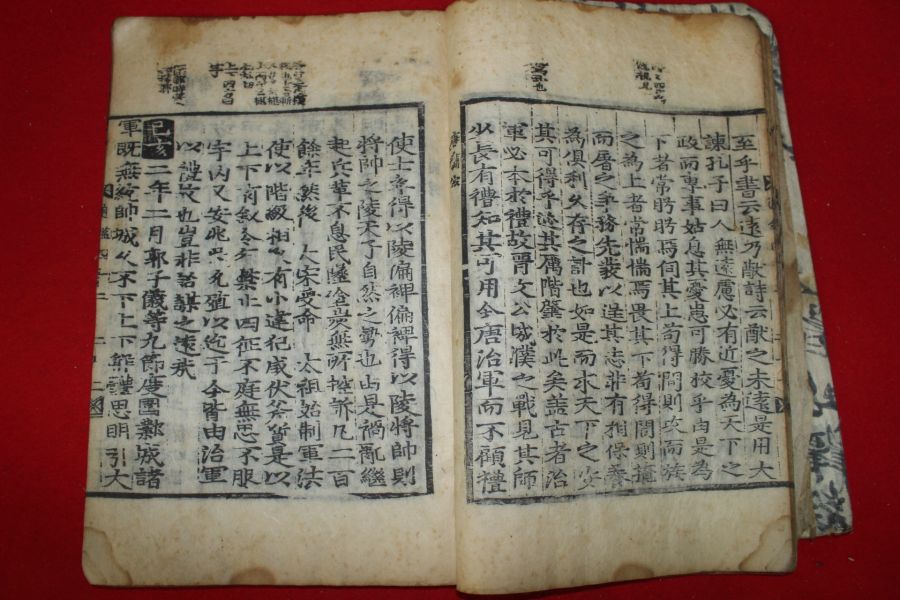 至乎書云遠乃猷詩云猷之未遠是用大
諫孔子曰人無遠慮必有近憂為天下之
政而專事姑息其憂患可勝校乎由是為
下者常眄眄焉伺其上苟得間則攻而族
之為上者常惴惴焉畏其下苟得間則掩
而屠之爭務先發以逞其志非有相保養
為俱利久存之計也如是而求天下之安
其可得乎迹其厲階肇於此矣蓋古者治
軍必本於禮故晉文公城濮之戰見其師
少長有禮知其可用今唐治軍而不顧禮
使士卒得以陵偏裨偏裨得以陵將帥則
將帥之陵天子自然之勢也由是禍亂繼
起兵革不息民墜塗炭無所控訴凡二百
餘年然後 大宋受命 太祖始制軍法
使以階級相 有小違犯咸伏斧質是以
上下有叙令行禁止四征不庭無思不服
宇內乂安兆民允殖以迄于今皆由治軍
以禮故也豈非詒謀之遠哉
己亥二年二月郭子儀等九節度圍鄴城諸
軍既無統帥城久不下上下解體思明引大